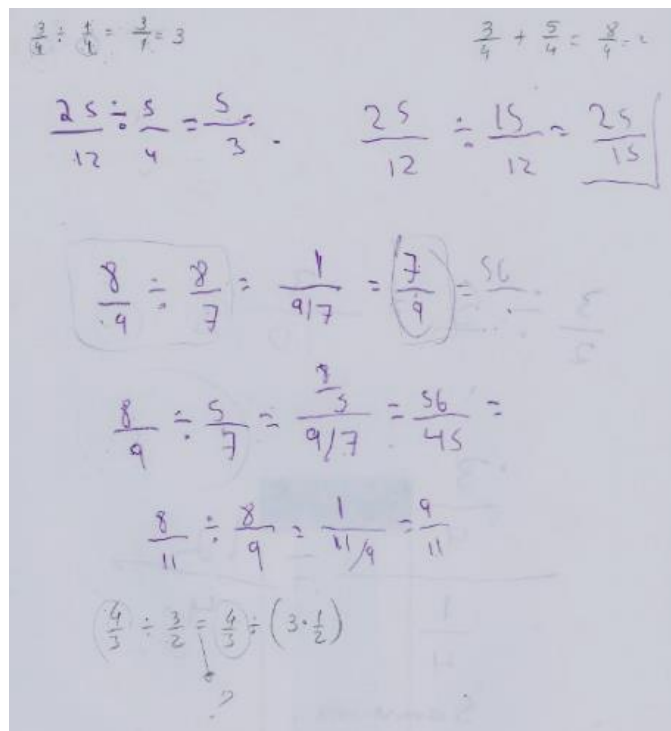 3/4 ÷ 1/4 = 3/1 = 3
3/4 + 5/4 = 8/4 =
25/12 ÷ 5/4 = 5/3 =
25/12 ÷ 15/12 = 25/15
8/9 ÷ 8/7 = 1/(9/7) = 7/9 = 56/
8/9 ÷ 5/7 = (8/5)/(9/7) = 56/45 =
8/11 ÷ 8/9 = 1/(11/9) = 9/11
4/3 ÷ 3/2 = 4/3 ÷ (3·1/2)
?